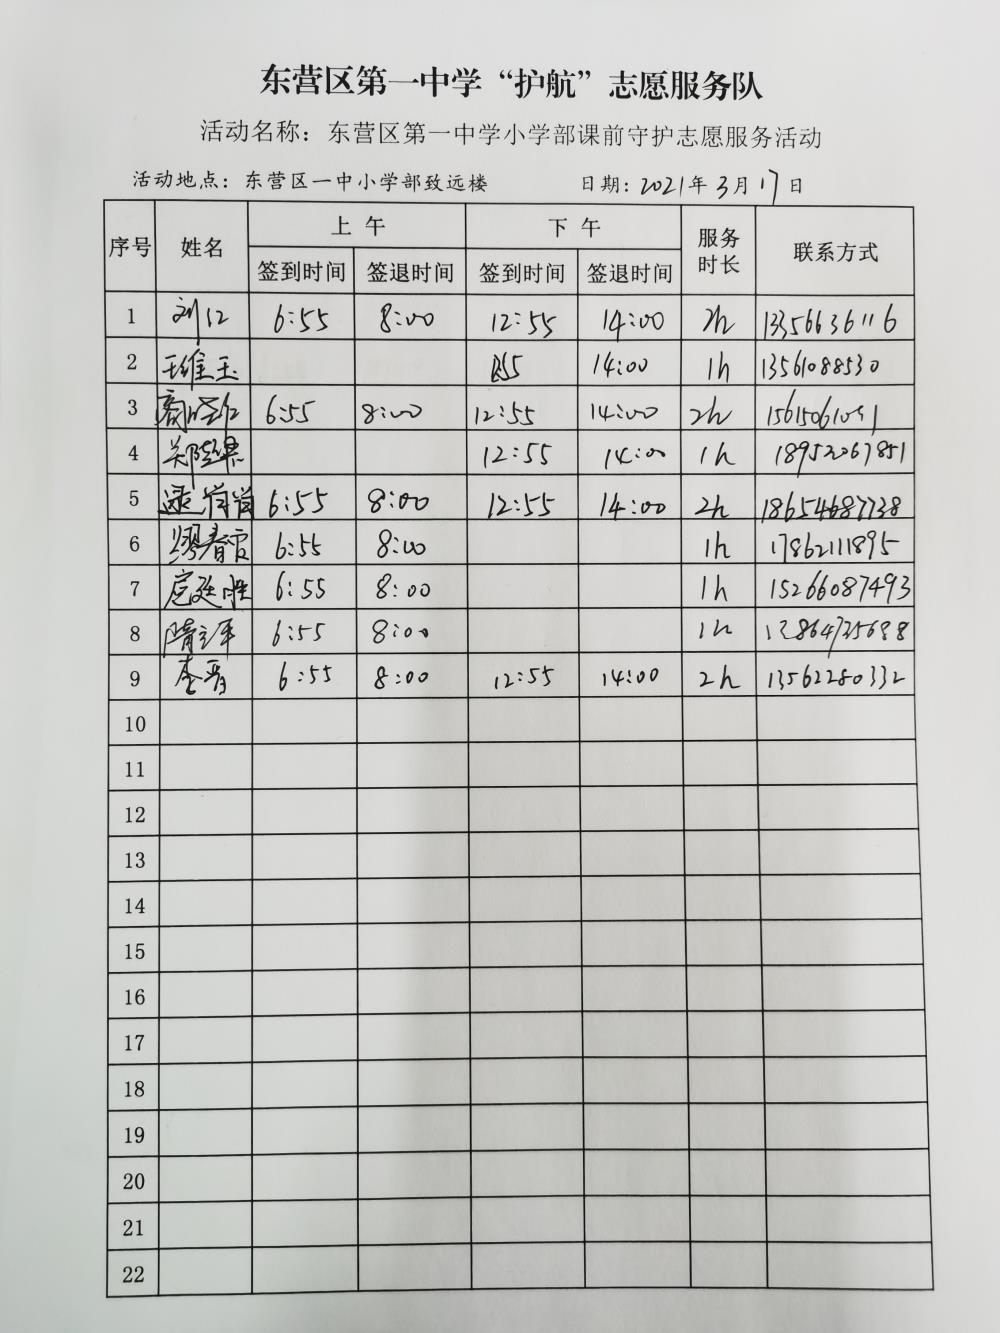 东营区第一中学“护航”志愿服务队
活动名称：东营区第一中学小学部课前守护志愿服务活动
活动地点：东营区一中小学部致远楼 日期：2021年3月17日
序号 姓名 上午 下午 服务时长 联系方式
签到时间 签退时间 签到时间 签退时间
1 刘江 6:55 8:00 12:55 14:00 2h 13356636116
2 14:00 1h 13561088530
3 6:55 8:00 12:55 14:00 2h
4 12:55 14:00 1h 18952067851
5 6:55 8:00 12:55 14:00 2h 18654687738
6 缪春雷 6:55 8:00 1h 17862111895
7 6:55 8:00 1h 15266087493
8 6:55 8:00 1h
9 李晋 6:55 8:00 12:55 14:00 2h 13562280332
10
11
12
13
14
15
16
17
18
19
20
21
22